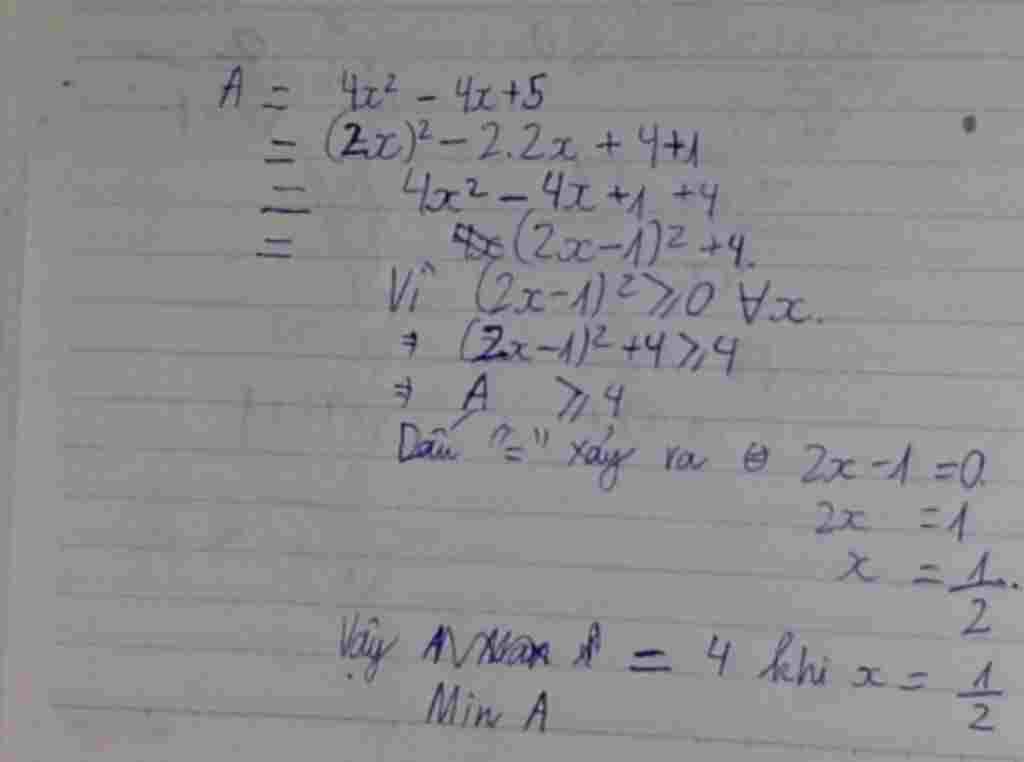 A = 4x² - 4x + 5
= (2x)² - 2.2x + 4 + 1
= 4x² - 4x + 1 + 4
= (2x - 1)² + 4.
Vì (2x - 1)² ⩾ 0 ∀x.
⇒ (2x - 1)² + 4 ⩾ 4
⇒ A ⩾ 4
Dấu "=" xảy ra ⇔ 2x - 1 = 0.
2x = 1
x = 1/2.
Vậy = 4 khi x = 1/2
Min A